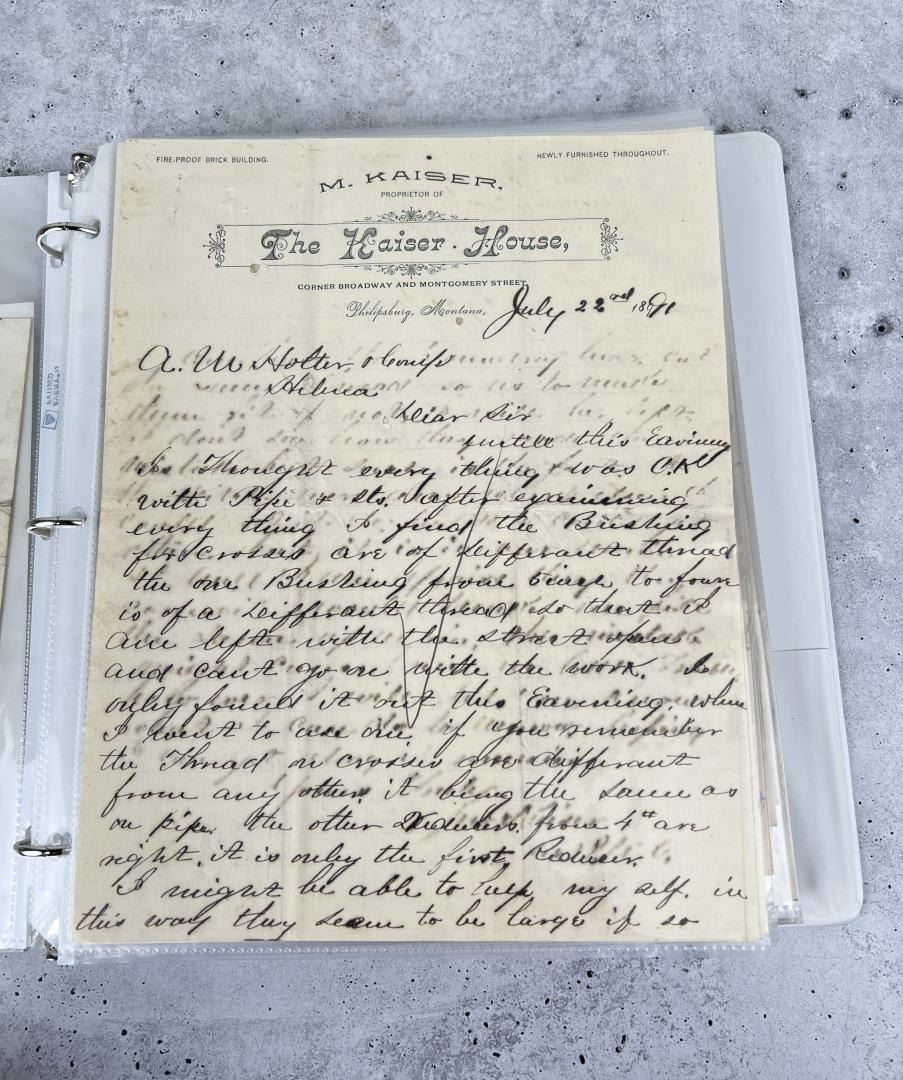 FIRE-PROOF BRICK BUILDING.
NEWLY FURNISHED THROUGHOUT.
M. KAISER,
PROPRIETOR OF
The Kaiser House,
CORNER BROADWAY AND MONTGOMERY STREET,
Philipsburg, Montana, July 22nd 1891
A. M Holter
Helena
Dear Sir
untill this Eavining
I Thought every thing was O.K
with Pipe & after examining
every thing I find the Bushing
for crosses are of differant thread
the one Bushing from to four
is of a differant thread so that I
am left with the street open
and cant go on with the work. I
only found it out this Eavining. when
I went to use one, if you remember
the Thread on crosses are differant
from any other. it being the same as
on pipe. the other Reducers from 4" are
right. it is only the first Reducer.
I might be able to help my self. in
this way they seem to be large if so